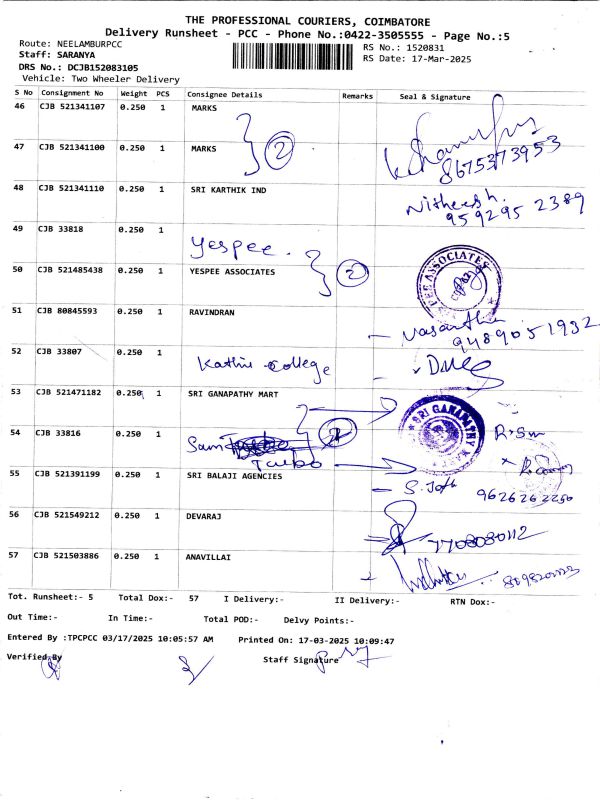 THE PROFESSIONAL COURIERS, COIMBATORE
Delivery Runsheet - PCC - Phone No.:0422-3505555 - Page No.:5
Route: NEELAMBURPCC
RS No.: 1520831
Staff: SARANYA
RS Date: 17-Mar-2025
DRS No.: DCJB152083105
Vehicle: Two Wheeler Delivery
S No Consignment No Weight PCS Consignee Details Remarks Seal & Signature
46 CJB 521341107 0.250 1 MARKS
2
47 CJB 521341100 0.250 1 MARKS
8675373953
48 CJB 521341110 0.250 1 SRI KARTHIK IND
Nitheesh.
959295 2389
49 CJB 33818 0.250 1
Yespee.
50 CJB 521485438 0.250 1 YESPEE ASSOCIATES
2
ASSOCIATES
51 CJB 80845593 0.250 1 RAVINDRAN
Vasantha
9489051932
52 CJB 33807 0.250 1 Kathir College
53 CJB 521471182 0.250 1 SRI GANAPATHY MART
SRI GANAPATHY
54 CJB 33816 0.250 1 Sam
Turbo
55 CJB 521391199 0.250 1 SRI BALAJI AGENCIES
9626262250
56 CJB 521549212 0.250 1 DEVARAJ
7708080112
57 CJB 521503886 0.250 1 ANAVILLAI
Tot. Runsheet:- 5 Total Dox:- 57 I Delivery:- II Delivery:- RTN Dox:-
Out Time:- In Time:- Total POD:- Delvy Points:-
Entered By :TPCPCC 03/17/2025 10:05:57 AM Printed On: 17-03-2025 10:09:47
Verified By Staff Signature